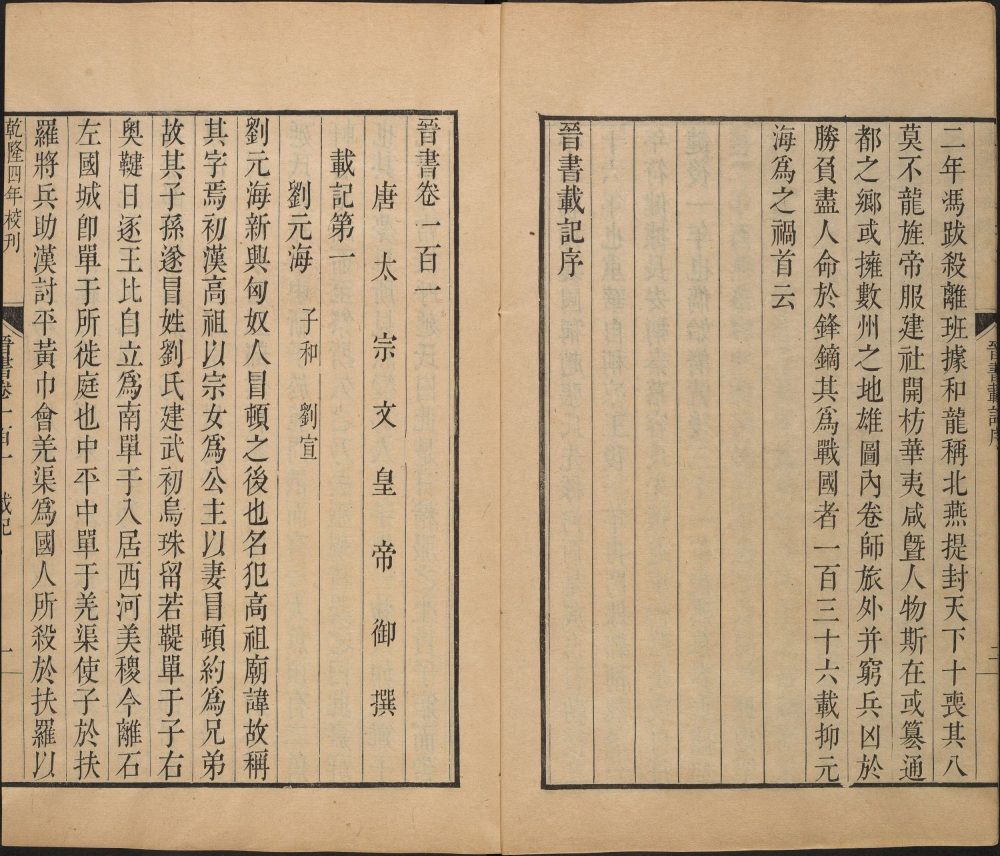 二年馮跋殺離班據和龍稱北燕提封天下十喪其八
莫不龍旌帝服建社開祊華夷咸曁人物斯在或篡通
都之鄉或擁數州之地雄圖內卷師旅外并窮兵凶於
勝負盡人命於鋒鏑其爲戰國者一百三十六載抑元
海爲之禍首云
晉書載記序
晉書載記序
二
晉書卷一百一
唐太宗文皇帝御撰
載記第一
劉元海 子和 劉宣
劉元海新興匈奴人冒頓之後也名犯高祖廟諱故稱
其字焉初漢高祖以宗女爲公主以妻冒頓約爲兄弟
故其子孫遂冒姓劉氏建武初烏珠留若鞮單于子右
奧鞬日逐王比自立爲南單于入居西河美稷今離石
左國城卽單于所徙庭也中平中單于羌渠使子於扶
羅將兵助漢討平黃巾會羌渠爲國人所殺於扶羅以
乾隆四年校刊
晉書卷一百一 載記
一